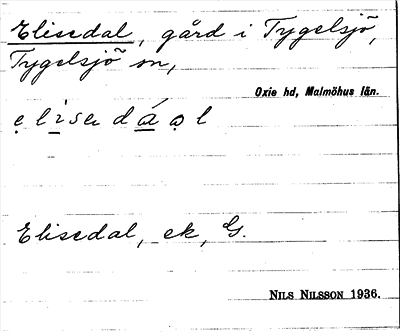 Elisedal, gård i Tygelsjö,
Tygelsjö sn,
Oxie hd, Malmöhus län.
Elisedal, ek, G.
NILS NILSSON 1936.